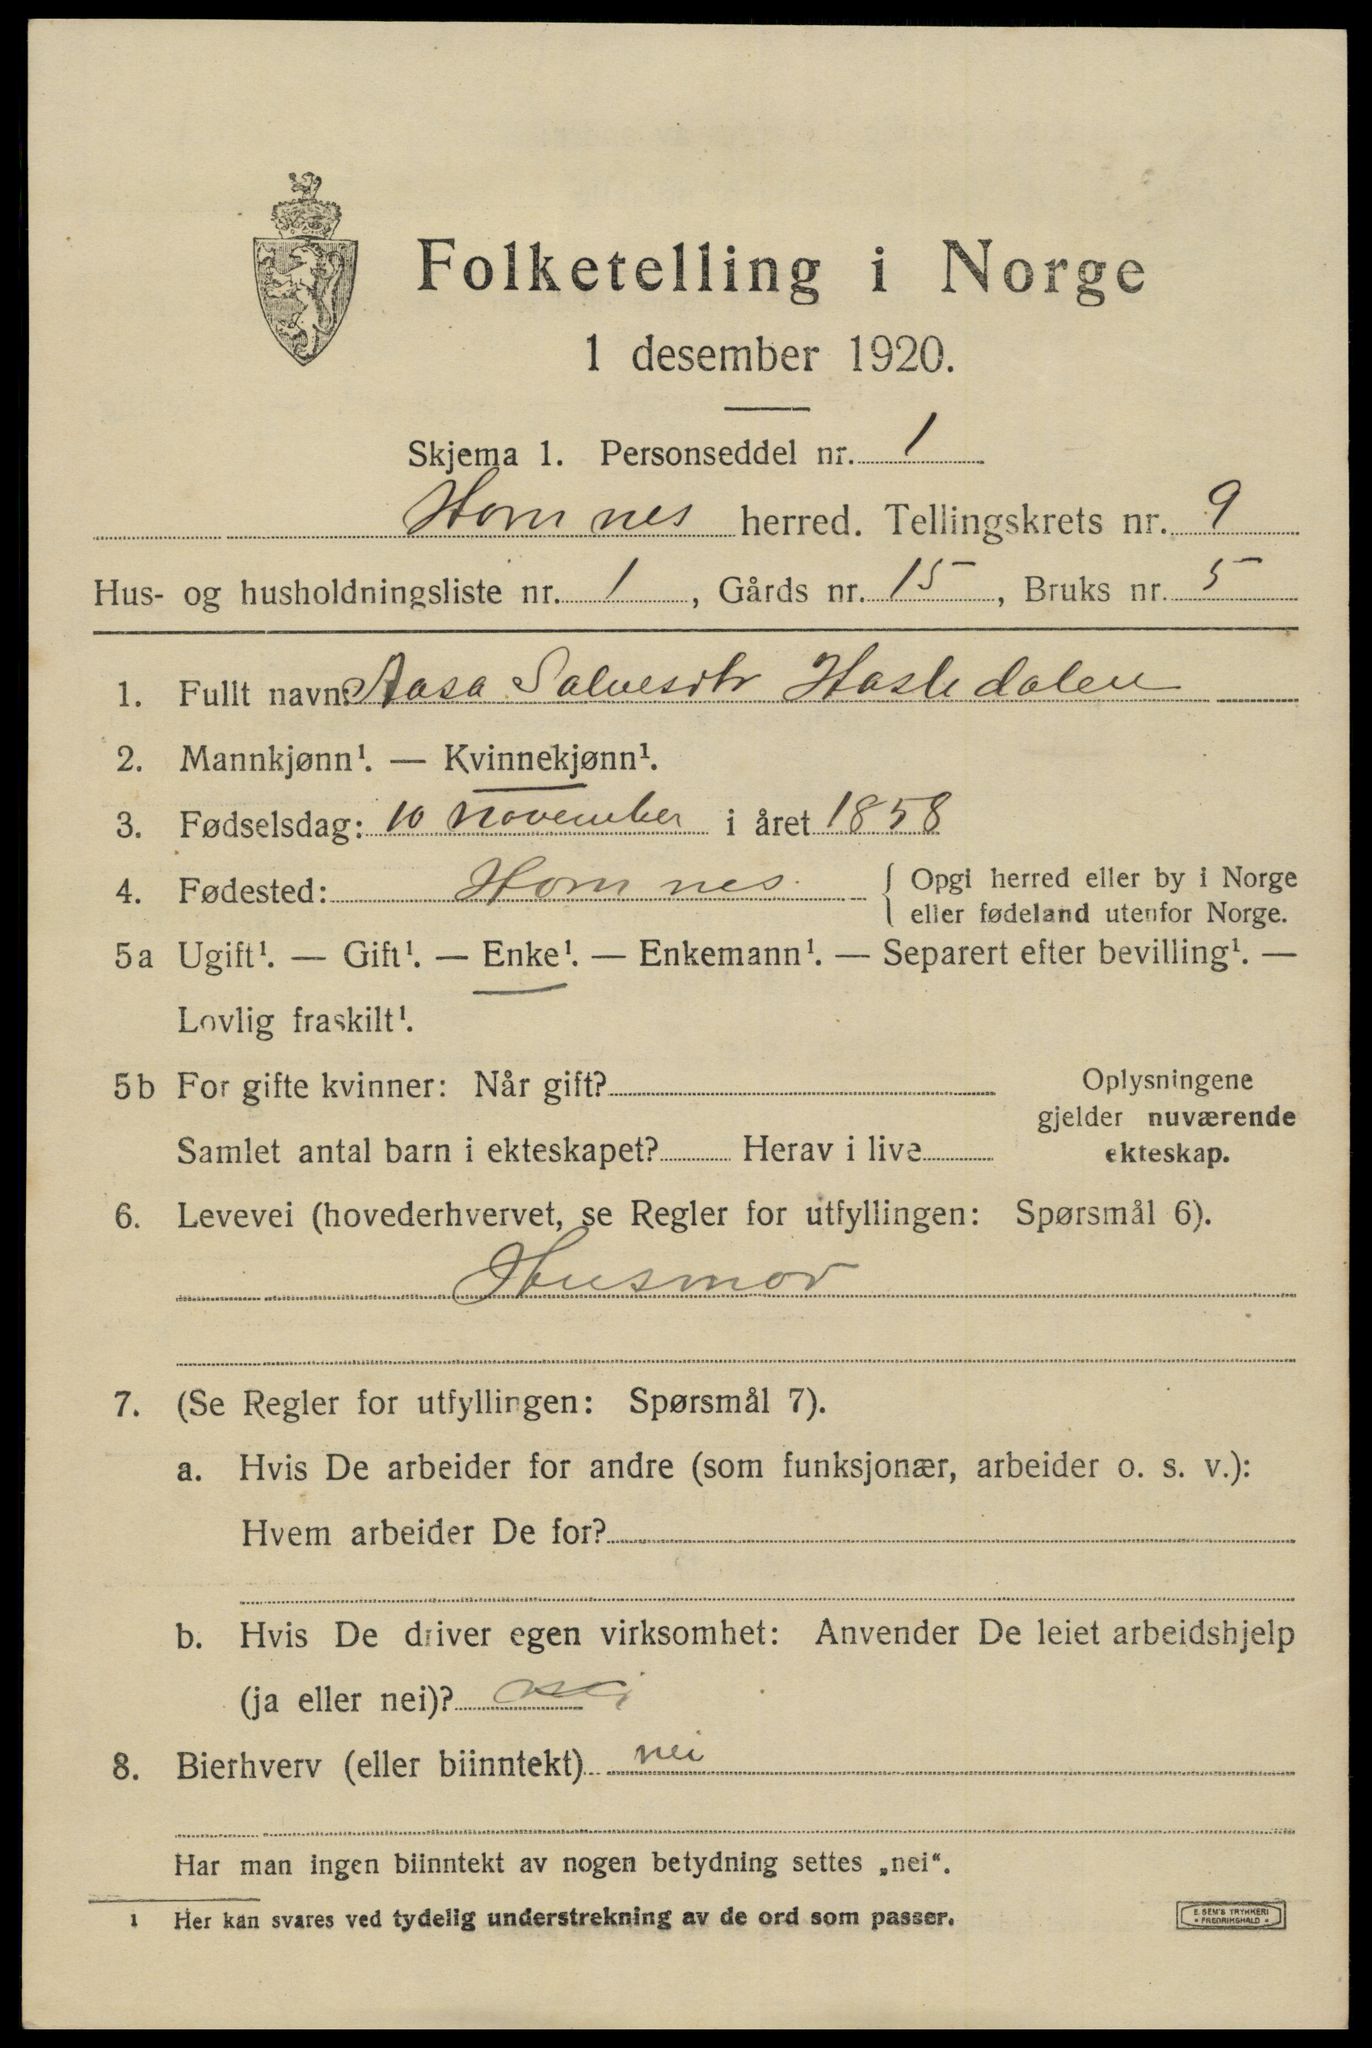 Folketelling i Norge
1 desember 1920.
Skjema 1. Personseddel nr. 1
Hornnes herred. Tellingskrets nr. 9
Hus- og husholdningsliste nr. 1, Gårds nr. 15, Bruks nr. 5
1. Fullt navn: Aasa Salvesdtr Hasledalen
2. Mannkjønn¹. — Kvinnekjønn¹.
3. Fødselsdag: 10 november i året 1858
4. Fødested: Hornnes { Opgi herred eller by i Norge
eller fødeland utenfor Norge.
5a Ugift¹. — Gift¹. — Enke¹. — Enkemann¹. — Separert efter bevilling¹. —
Lovlig fraskilt¹.
5b For gifte kvinner: Når gift? Oplysningene
gjelder nuværende
Samlet antal barn i ekteskapet? Herav i live ekteskap.
6. Levevei (hovederhvervet, se Regler for utfyllingen: Spørsmål 6).
Husmor
7. (Se Regler for utfyllingen: Spørsmål 7).
a. Hvis De arbeider for andre (som funksjonær, arbeider o. s. v.):
Hvem arbeider De for?
b. Hvis De driver egen virksomhet: Anvender De leiet arbeidshjelp
(ja eller nei)? nei
8. Bierhverv (eller biinntekt) nei
Har man ingen biinntekt av nogen betydning settes „nei“.
1 Her kan svares ved tydelig understrekning av de ord som passer.
E. SEM'S TRYKKERI
* FREDRIKSHALD *